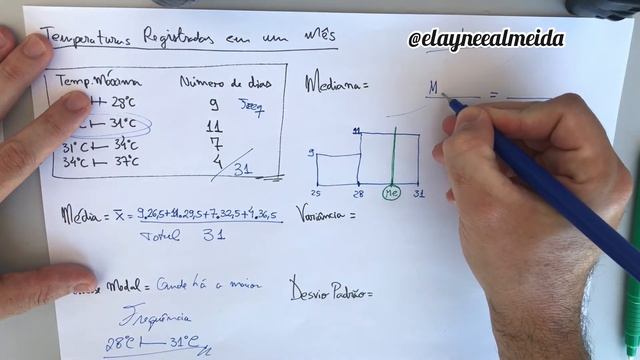 @elayneealmeida
Temperaturas Registradas em um Mês
Temp. Máxima Número de dias
28°C 9 Freq
31°C 11
31°C ⊢ 34°C 7
34°C ⊢ 37°C 4
31
Mediana =
M =
11
9
25 28 Me 31
Média = x̄ = 9.26,5+11.29,5+7.32,5+4.36,5
Total 31
Variância =
Modal = Onde há a maior
Frequência
28°C ⊢ 31°C
Desvio Padrão =